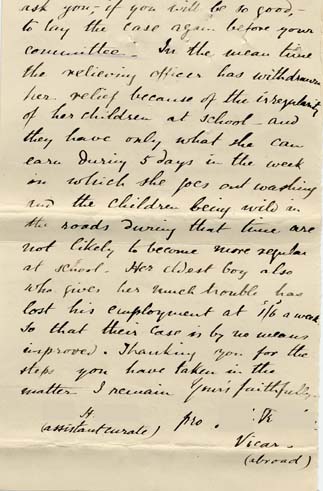 ask you, if you will be so good,
to lay the case again before your
committee. In the mean time
the relieving officer has withdrawn
her relief because of the irregularity
of her children at school - and
they have only what she can
earn during 5 days in the week
in which she goes out washing
and the children being wild in
the roads during that time are
not likely to become more regular
at school. Her eldest boy also
who gives her much trouble has
lost his employment at 1/6 a week
So that their case is by no means
improved. Thanking you for the
steps you have taken in the
matter I remain Yours faithfully
H.
(assistant curate) pro.
Vicar.
(abroad)